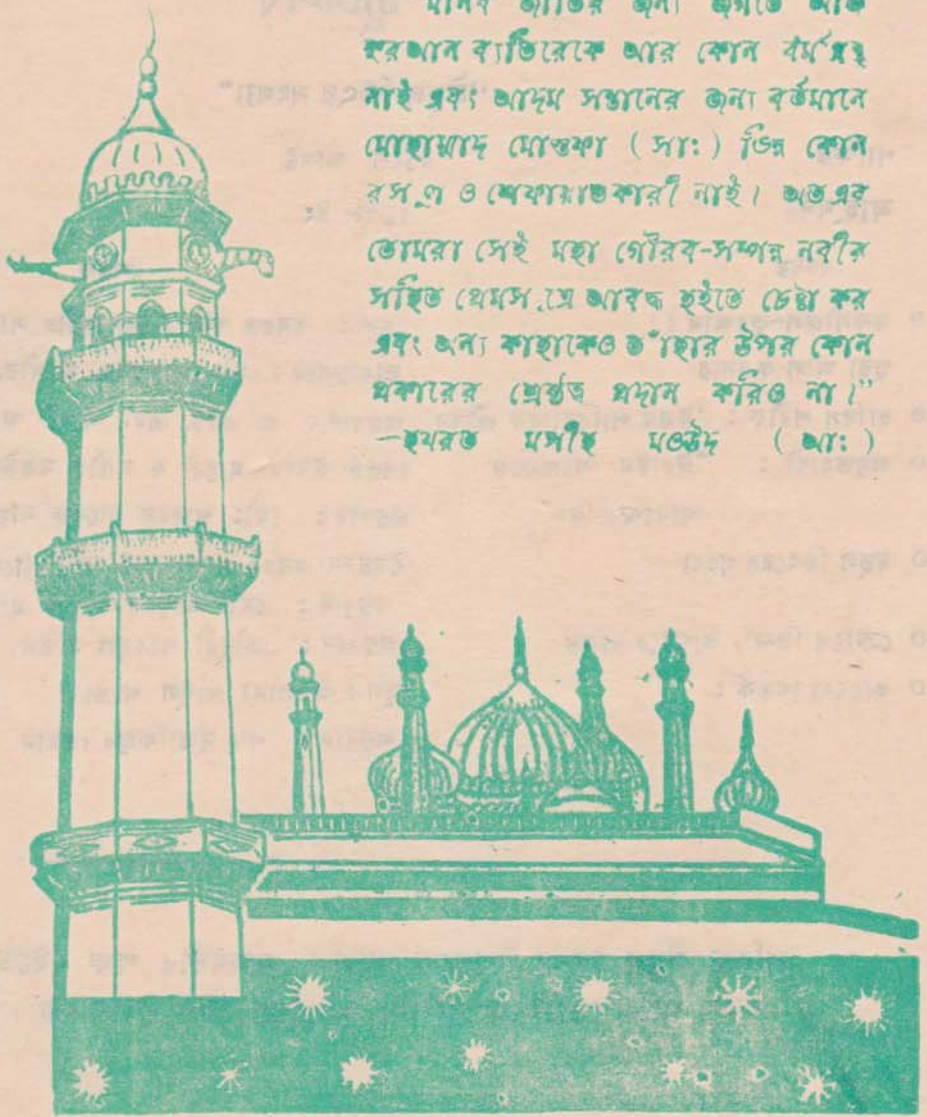 মানব জাতির জন্য জগতে আজ
কুরআন ব্যতিরেকে আর কোন ধর্মগ্রন্থ
নাই এবং আদম সন্তানের জন্য বর্তমানে
মোহাম্মাদ মোস্তফা (সাঃ) ভিন্ন কোন
রসূল ও শেফায়াতকারী নাই। অতএব
তোমরা সেই মহা গৌরব-সম্পন্ন নবীর
সহিত প্রেমসূত্রে আবদ্ধ হইতে চেষ্টা কর
এবং অন্য কাহাকেও তাঁহার উপর কোন
প্রকারের শ্রেষ্ঠত্ব প্রদান করিও না।”
—হযরত মসীহ মওউদ (আঃ)